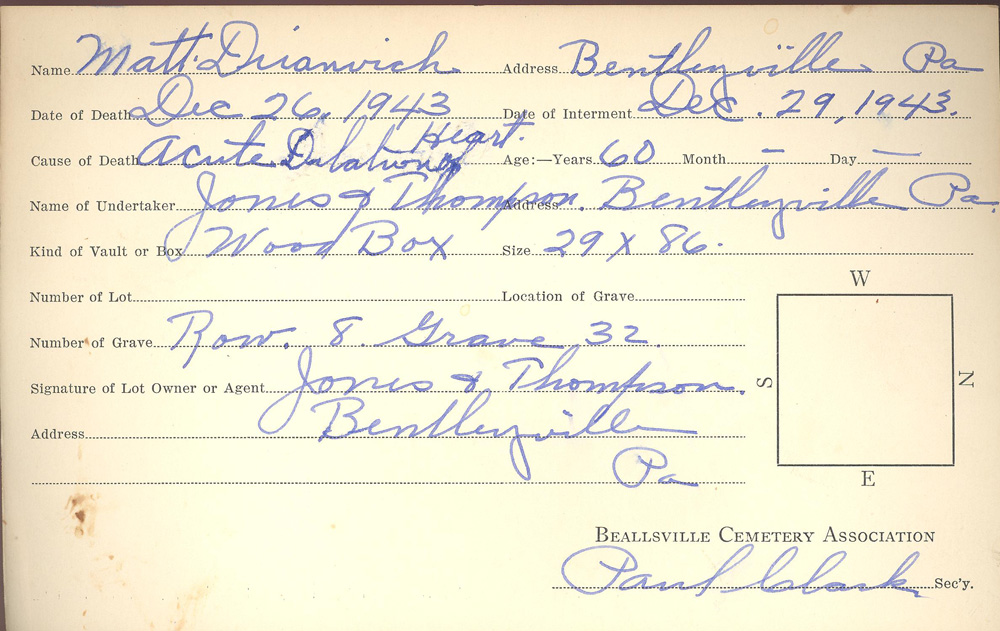 Name Matt Address Bentleyville Pa
Date of Death Dec 26, 1943 Date of Interment Dec. 29, 1943.
Heart.
Cause of Death Acute Dalation of Age:—Years 60 Month — Day —
Name of Undertaker Jones & Thompson. Address Bentleyville Pa.
Kind of Vault or Box Wood Box Size 29 X 86.
W
Number of Lot Location of Grave
Number of Grave Row. 8. Grave 32.
S N
Signature of Lot Owner or Agent Jones & Thompson.
Address Bentleyville
Pa
E
BEALLSVILLE CEMETERY ASSOCIATION
Paul Clark Sec'y.